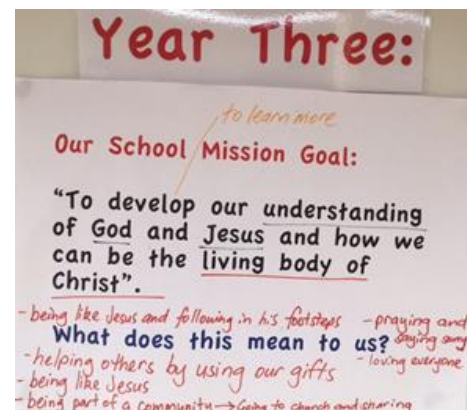 Year Three:
to learn more
Our School Mission Goal:
“To develop our understanding
of God and Jesus and how we
can be the living body of
Christ”.
- being like Jesus and following in his footsteps
- praying and
What does this mean to us?
saying sorry
- helping others by using our gifts
- loving everyone
- being like Jesus
- being part of a community → Going to church and sharing